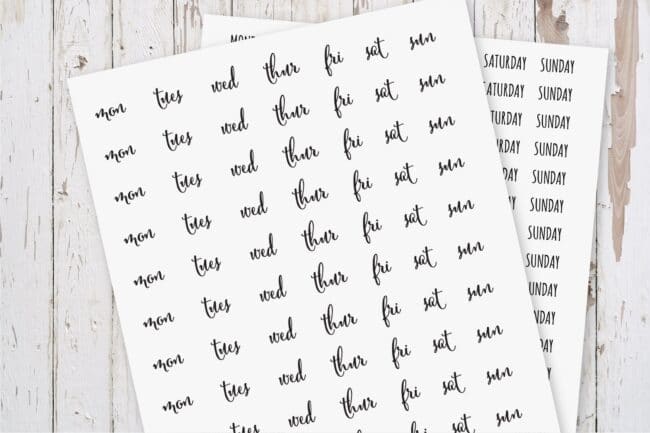 mon tues wed thur fri sat sun
mon tues wed thur fri sat sun
mon tues wed thur fri sat sun
mon tues wed thur fri sat sun
mon tues wed thur fri sat sun
mon tues wed thur fri sat sun
mon tues wed thur fri sat sun
mon tues wed thur fri sat sun
tues wed thur fri sat sun
fri sat sun
SATURDAY SUNDAY
SUNDAY
SUNDAY
SUNDAY
SUNDAY
SUNDAY
SUNDAY
SUNDAY